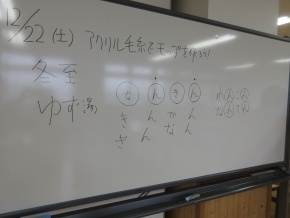 12/22(土) アクリル毛糸でモップを作ろう
冬至
ゆず湯
なんきん
きんかん
ぎんなん
れんこん